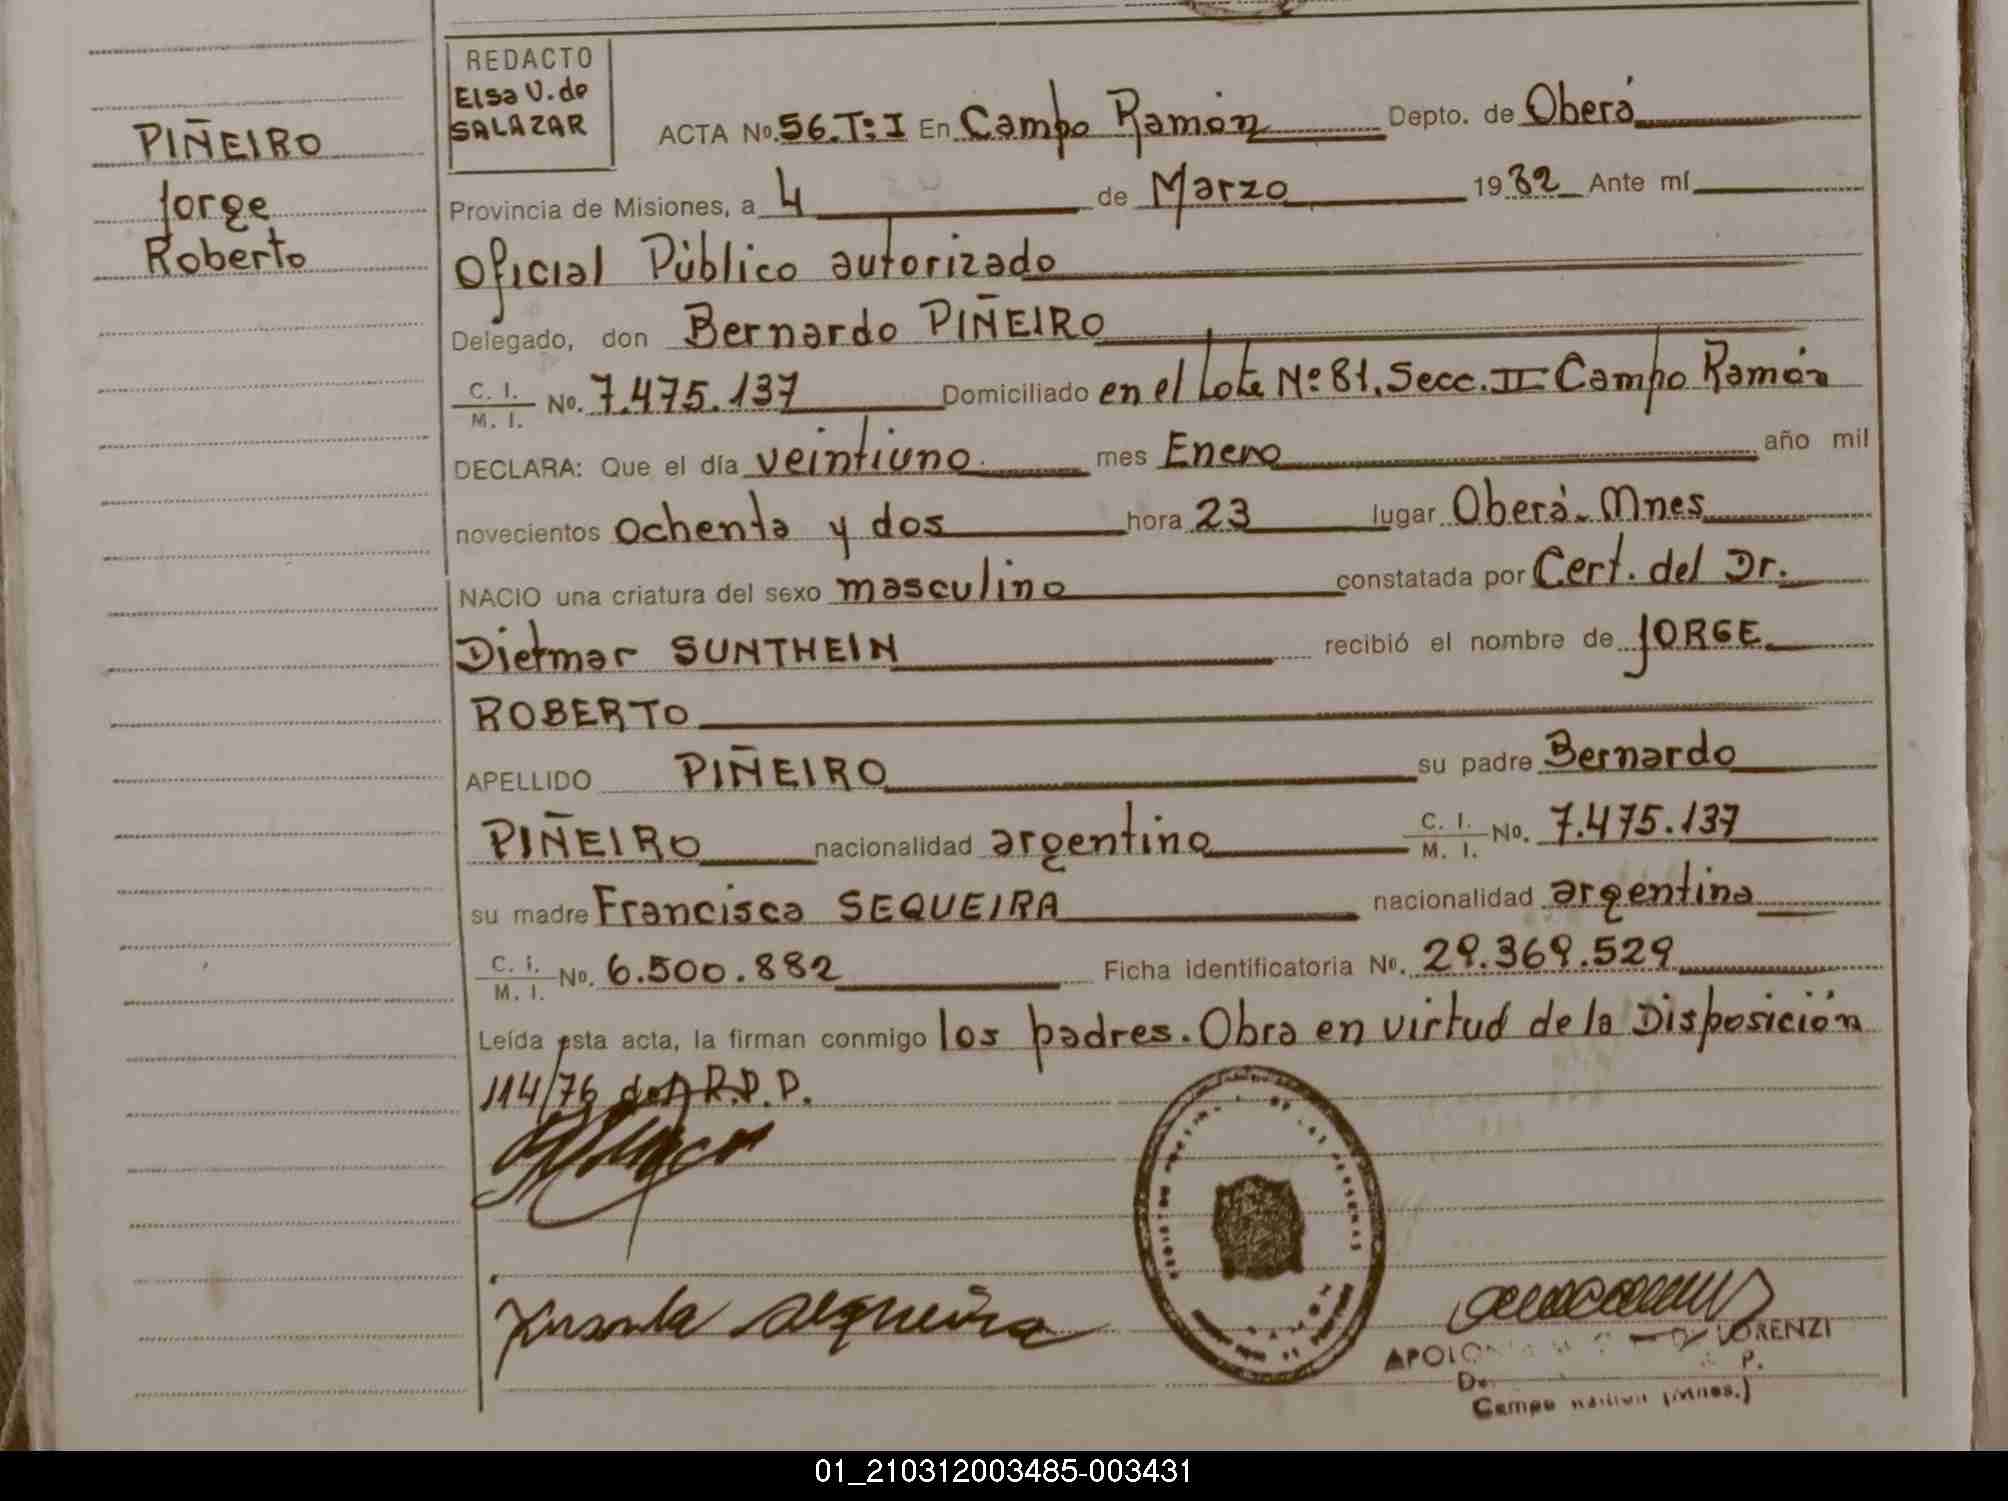 PIÑEIRO
Jorge
Roberto
REDACTO
Elsa V. de
SALAZAR
ACTA No. 56. T: I En Campo Ramón Depto. de Oberá
Provincia de Misiones, a 4 de Marzo 1982 Ante mí
Oficial Público autorizado
Delegado, don Bernardo PIÑEIRO
C. I. / M. I. No. 7.475.137 Domiciliado en el Lote Nº 81. Secc. II Campo Ramón
DECLARA: Que el día veintiuno mes Enero año mil
novecientos ochenta y dos hora 23 lugar Oberá. Mnes
NACIO una criatura del sexo masculino constatada por Cert. del Dr.
Dietmar SUNTHEIN recibió el nombre de JORGE
ROBERTO
APELLIDO PIÑEIRO su padre Bernardo
PIÑEIRO nacionalidad argentino C. I. / M. I. No. 7.475.137
su madre Francisca SEQUEIRA nacionalidad argentina
C. I. / M. I. No. 6.500.882 Ficha identificatoria No. 29.369.529
Leída esta acta, la firman conmigo los padres. Obra en virtud de la Disposición
114/76 del R.P.P.
sequeira
LORENZI
P.
Campo (Mnes.)
01_210312003485-003431